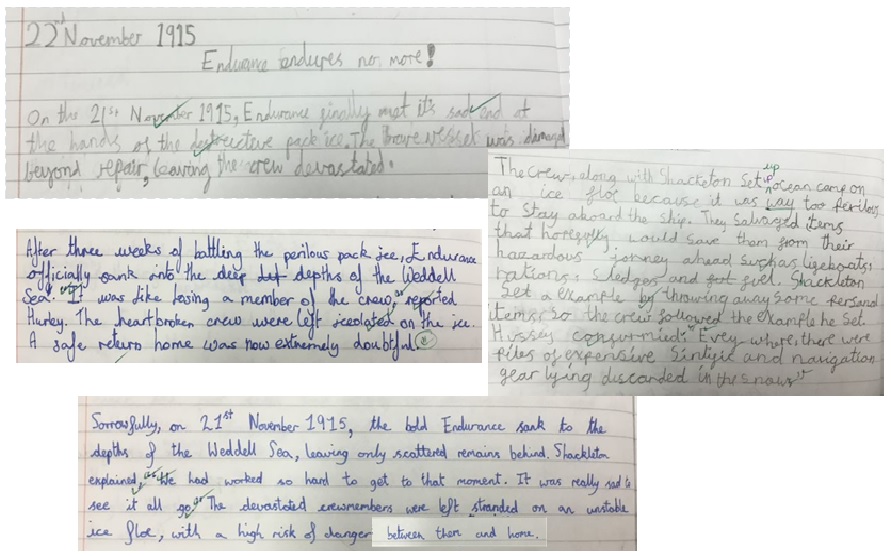 22nd November 1915
Endurance endures no more!
On the 21st November 1915, Endurance finally met it's sad end at
the hands of the destructive pack ice. The brave vessel was damaged
beyond repair, leaving the crew devastated.
The crew, along with Shackleton set up ocean camp on
an ice floe because it was way too perilous
to stay aboard the ship. They salvaged items
that hopefully would save them from their
hazardous jorney ahead such as ligeboats,
rations, sledges and fuel. Shackleton
set a example by throwing away some persanal
items. So the crew followed the example he set.
Hussey consurmied: "Evey where, there were
piles of expensive Sintific and navigation
gear lying discarded in the snow"
After three weeks of battling the perilous pack ice, Endurance
officially sank into the deep depths of the Weddell
Sea. "It was like losing a member of the crew," reported
Hurley. The heartbroken crew were left iceolated on the ice.
A safe return home was now extremely doubtful.
Sorrowfully, on 21st November 1915, the bold Endurance sank to the
depths of the Weddell Sea, leaving only scattered remains behind. Shackleton
explained, "We had worked so hard to get to that moment. It was really sad to
see it all go." The devastated crewmembers were left stranded on an unstable
ice floe, with a high risk of danger between them and home.